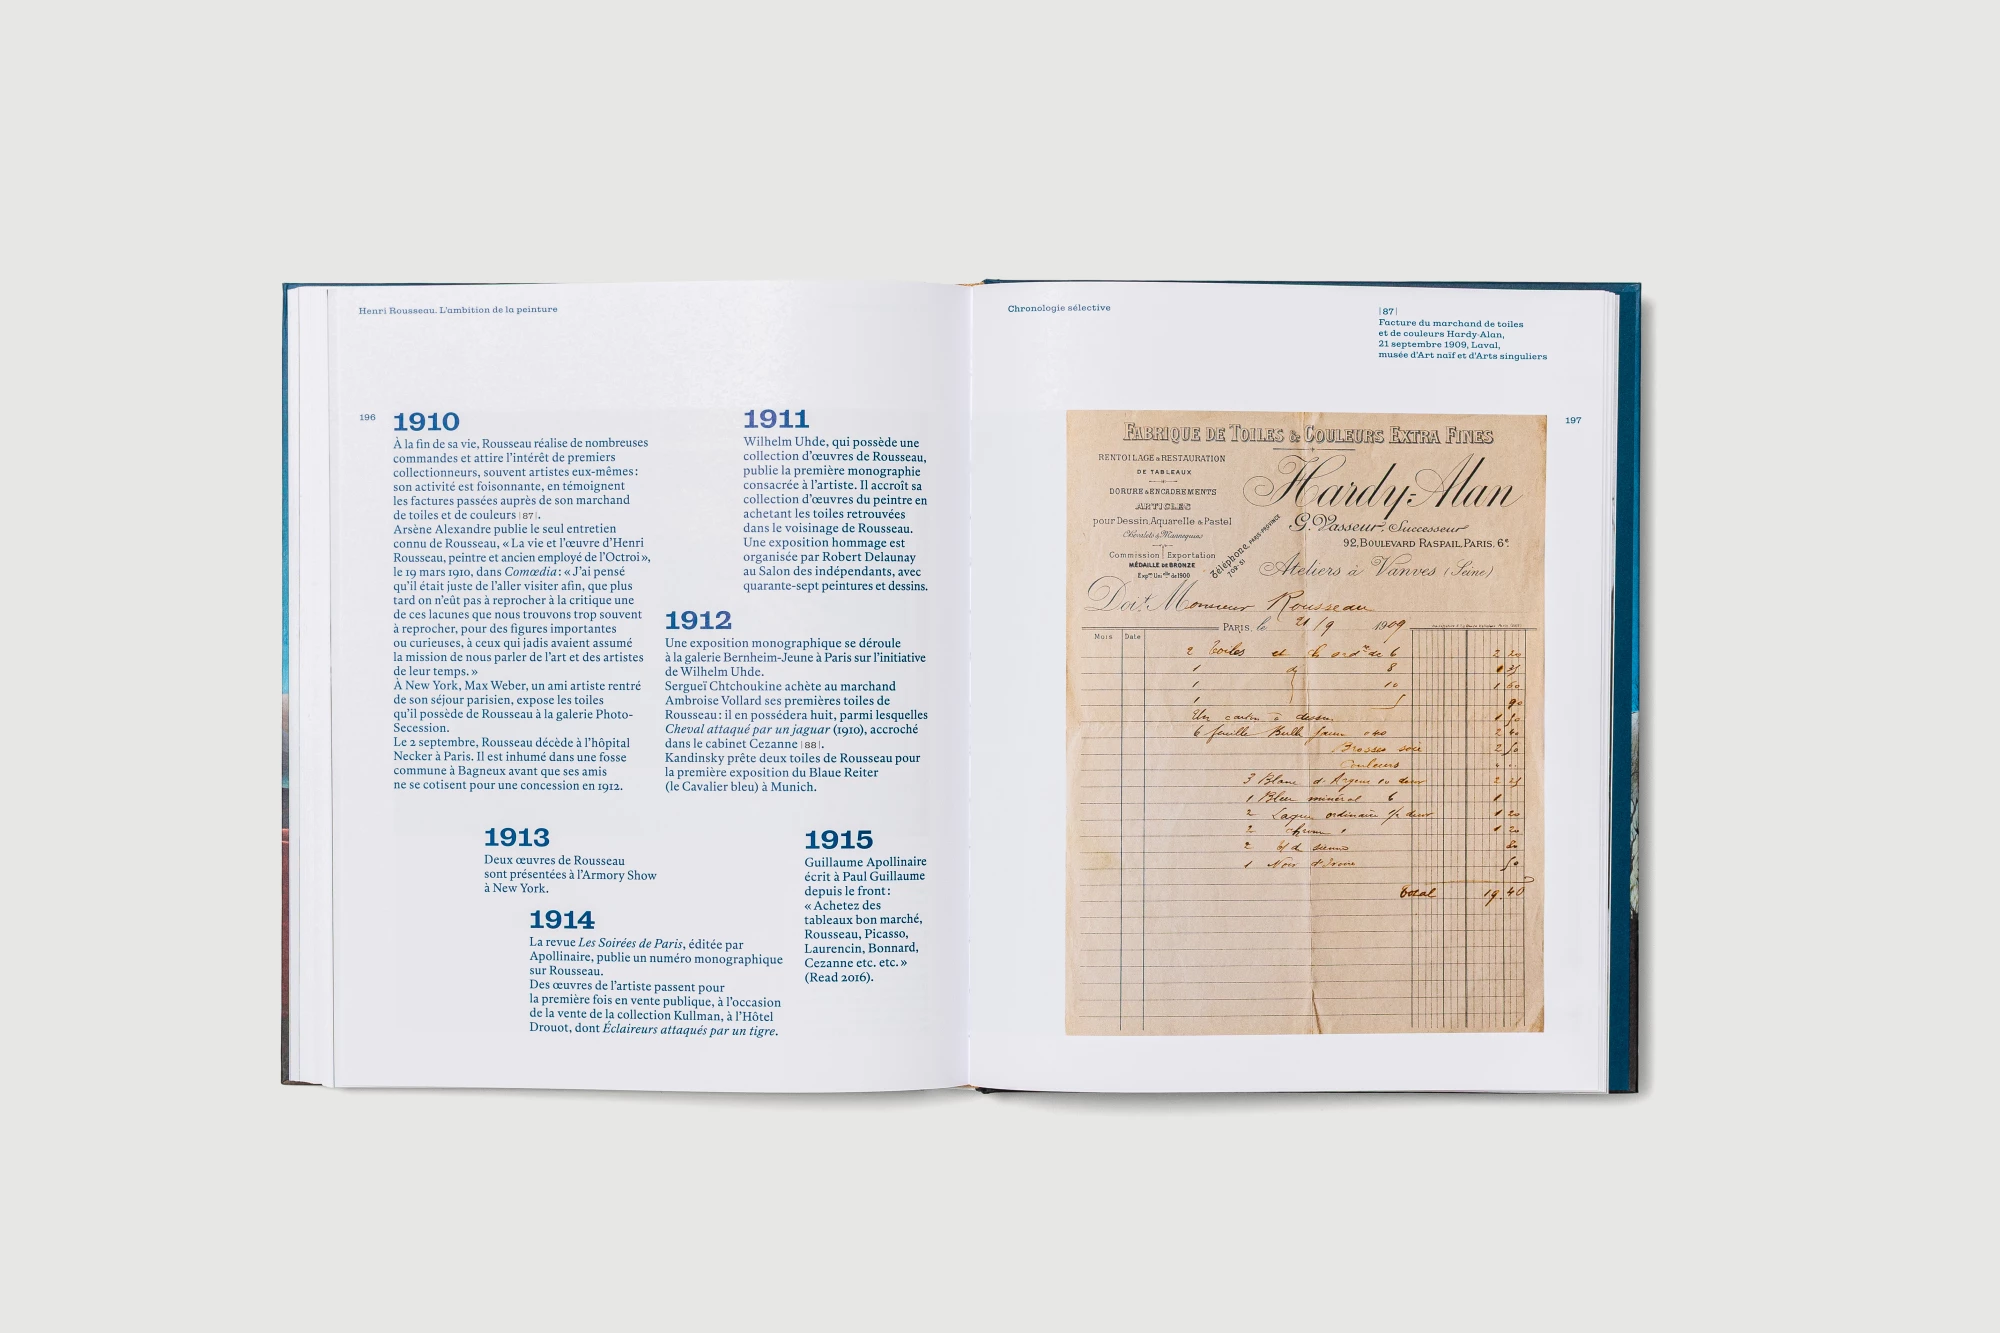 Henri Rousseau. L'ambition de la peinture
196
1910
À la fin de sa vie, Rousseau réalise de nombreuses
commandes et attire l'intérêt de premiers
collectionneurs, souvent artistes eux-mêmes :
son activité est foisonnante, en témoignent
les factures passées auprès de son marchand
de toiles et de couleurs |87|.
Arsène Alexandre publie le seul entretien
connu de Rousseau, « La vie et l'œuvre d'Henri
Rousseau, peintre et ancien employé de l'Octroi »,
le 19 mars 1910, dans Comœdia : « J'ai pensé
qu'il était juste de l'aller visiter afin, que plus
tard on n'eût pas à reprocher à la critique une
de ces lacunes que nous trouvons trop souvent
à reprocher, pour des figures importantes
ou curieuses, à ceux qui jadis avaient assumé
la mission de nous parler de l'art et des artistes
de leur temps. »
À New York, Max Weber, un ami artiste rentré
de son séjour parisien, expose les toiles
qu'il possède de Rousseau à la galerie Photo-
Secession.
Le 2 septembre, Rousseau décède à l'hôpital
Necker à Paris. Il est inhumé dans une fosse
commune à Bagneux avant que ses amis
ne se cotisent pour une concession en 1912.
1911
Wilhelm Uhde, qui possède une
collection d'œuvres de Rousseau,
publie la première monographie
consacrée à l'artiste. Il accroît sa
collection d'œuvres du peintre en
achetant les toiles retrouvées
dans le voisinage de Rousseau.
Une exposition hommage est
organisée par Robert Delaunay
au Salon des indépendants, avec
quarante-sept peintures et dessins.
1912
Une exposition monographique se déroule
à la galerie Bernheim-Jeune à Paris sur l'initiative
de Wilhelm Uhde.
Sergueï Chtchoukine achète au marchand
Ambroise Vollard ses premières toiles de
Rousseau : il en possédera huit, parmi lesquelles
Cheval attaqué par un jaguar (1910), accroché
dans le cabinet Cezanne |88|.
Kandinsky prête deux toiles de Rousseau pour
la première exposition du Blaue Reiter
(le Cavalier bleu) à Munich.
1913
Deux œuvres de Rousseau
sont présentées à l'Armory Show
à New York.
1914
La revue Les Soirées de Paris, éditée par
Apollinaire, publie un numéro monographique
sur Rousseau.
Des œuvres de l'artiste passent pour
la première fois en vente publique, à l'occasion
de la vente de la collection Kullman, à l'Hôtel
Drouot, dont Éclaireurs attaqués par un tigre.
1915
Guillaume Apollinaire
écrit à Paul Guillaume
depuis le front :
« Achetez des
tableaux bon marché,
Rousseau, Picasso,
Laurencin, Bonnard,
Cezanne etc. etc. »
(Read 2016).
Chronologie sélective
|87|
Facture du marchand de toiles
et de couleurs Hardy-Alan,
21 septembre 1909, Laval,
musée d'Art naïf et d'Arts singuliers
197
FABRIQUE DE TOILES & COULEURS EXTRA FINES
RENTOILAGE & RESTAURATION
DE TABLEAUX
DORURE & ENCADREMENTS
ARTICLES
pour Dessin, Aquarelle & Pastel
Chevalets & Mannequins
Commission | Exportation
MÉDAILLE DE BRONZE
Expon Unlle de 1900
Téléphone PARIS-PROVINCE
709-51
Hardy-Alan
G. Vasseur, Successeur
92, BOULEVARD RASPAIL, PARIS. 6e
Ateliers à Vanves (Seine)
Doit Monsieur Rousseau
PARIS, le 21/9 1909
Mois Date
2 Toiles et 6 2 20
1 8
1 10 1 60
1 5 90
Un carton à dessin 1 50
6 feuille Bulle 2 40
Brosses soie 2 50
Couleurs
3 Blanc d'Argent 10 2 25
1 Bleu minéral 6 1
2 Laque ordinaire 1/2 1 20
2 1 20
2 de sienne 80
1 Noir d'Ivoire 50
total 19.40